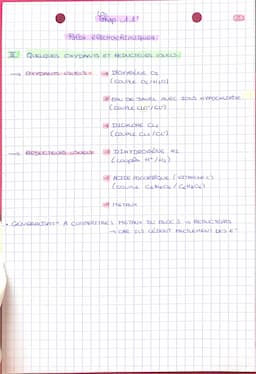 Chap 11
PILES ELECTROCHIMIQUES
I QUELQUES OXYDANTS ET REDUCTEURS USUELS :
→ OXYDANTS USUELS : → DIOXYGENE O2
(COUPLE O2/H2O)
EAU DE JAVEL AVEC IONS HYPOCHLORITE
(COUPLE ClO-/Cl-)
DICHLORE Cl2
(COUPLE Cl2/Cl-)
→ REDUCTEURS USUELS : DIHYDROGÈNE H2
(couple H+/H2)
ACIDE ASCORBIQUE (VITAMINE C)
(COUPLE C6H6O6 / C6H8O6)
METAUX
• GENERALEMENT A CONNAITRE : METAUX DU BLOC S → REDUCTEURS
→ CAR ILS CÈDENT FACILEMENT DES e-